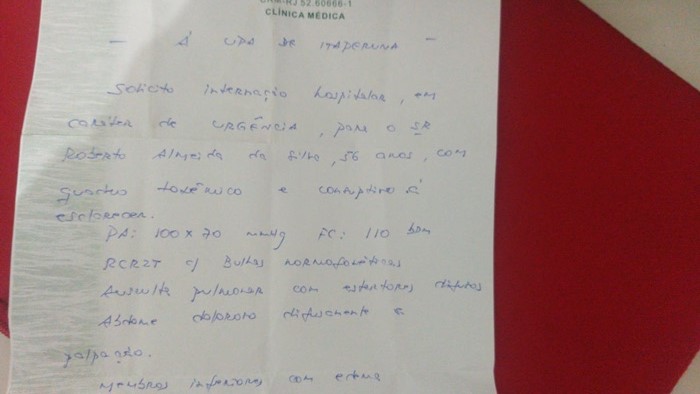 CRM-RJ 52.60666-1
CLÍNICA MÉDICA
— À UPA DE ITAPERUNA —
Solicito internação hospitalar, em
caráter de URGÊNCIA, para o SR
Roberto Almeida da Silva, 56 anos, com
quadro toxêmico e consuptivo à
esclarecer.
PA: 100 x 70 mmHg FC: 110 bpm
RCR2T c/ Bulhas normofonéticas
Ausculta pulmonar com estertores difusos
Abdome doloroso difusamente a
palpação.
Membros inferiores com edema